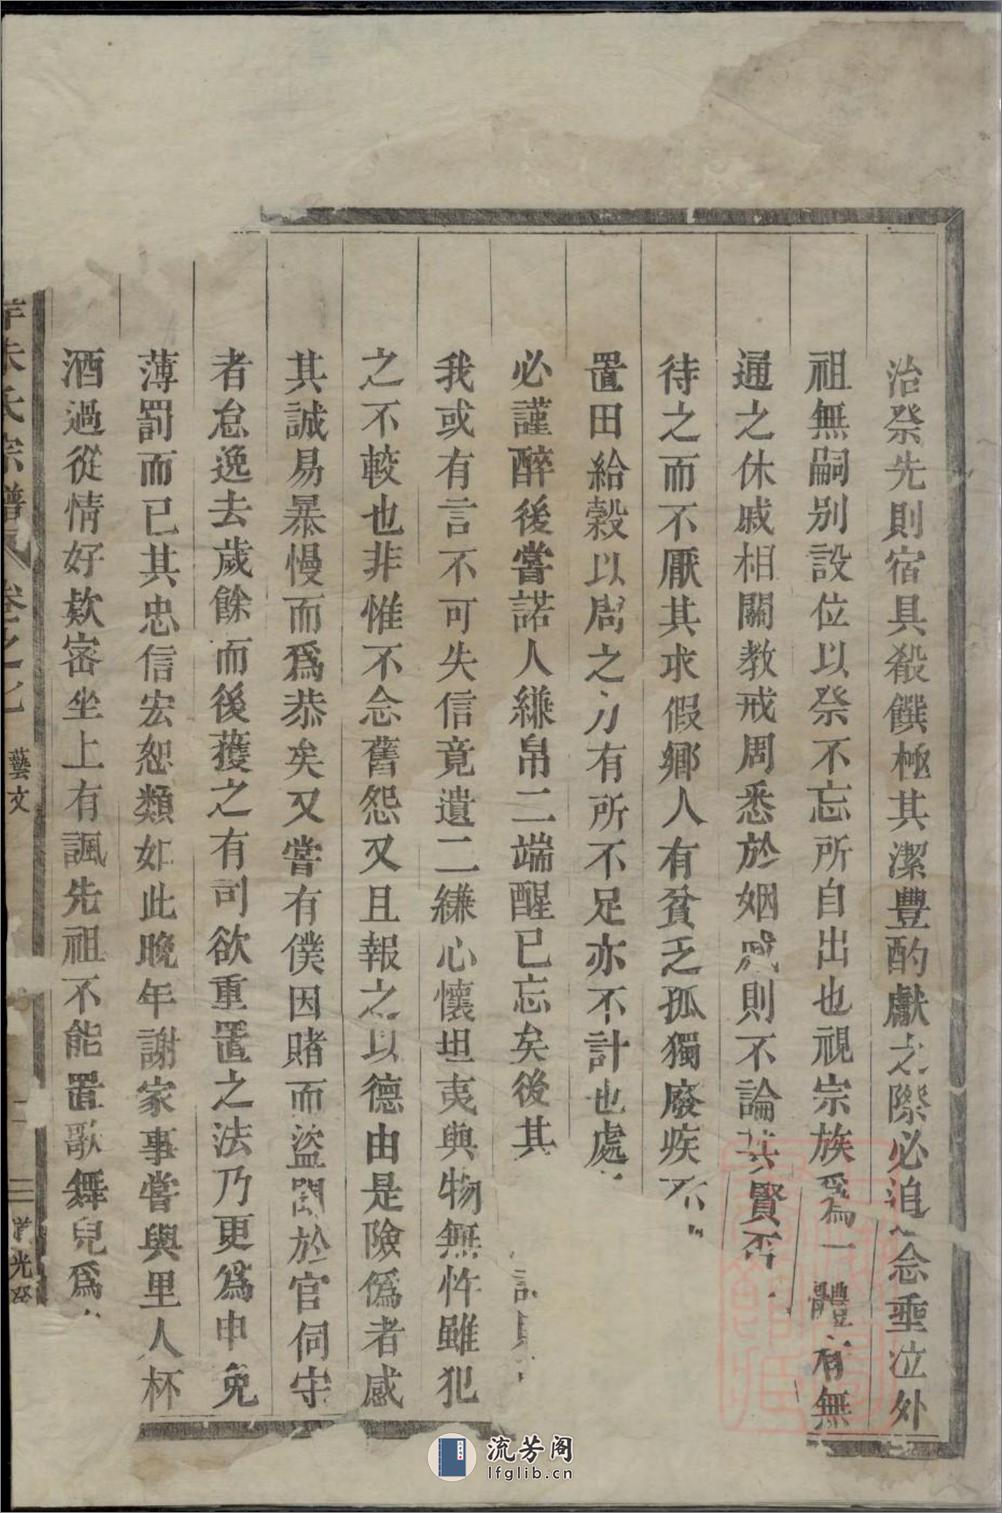 治祭先則宿具殽饌極其潔豐酌獻之際必追念垂泣外
祖無嗣别設位以祭不忘所自出也視宗族爲一體有無
通之休戚相關教戒周悉於姻戚則不論其賢否
待之而不厭其求假鄉人有貧乏孤獨廢疾不
置田給穀以周之力有所不足亦不計也處
必謹醉後嘗諾人縑帛二端醒已忘矣後其
我或有言不可失信竟遺二縑心懷坦夷與物無忤雖犯
之不較也非惟不念舊怨又且報之以德由是險僞者感
其誠易暴慢而爲恭矣又嘗有僕因賭而盜聞於官伺守
者怠逸去歲餘而後獲之有司欲重置之法乃更爲申免
薄罰而已其忠信宏恕類如此晚年謝家事嘗與里人杯
酒過從情好欵密坐上有諷先祖不能置歌舞兒爲
朱氏宗譜 卷之七 藝文
流芳阁
lfglib.cn